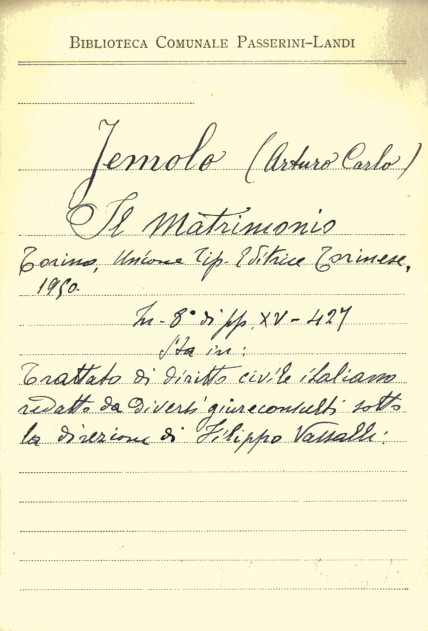 BIBLIOTECA COMUNALE PASSERINI-LANDI
Jemolo (Arturo Carlo)
Il Matrimonio
Torino, Unione Tip. Editrice Torinese,
1950.
In-8° di pp. XV-427
Sta in:
Trattato di diritto civile italiano
redatto da diversi giureconsulti sotto
la direzione di Filippo Vassalli.